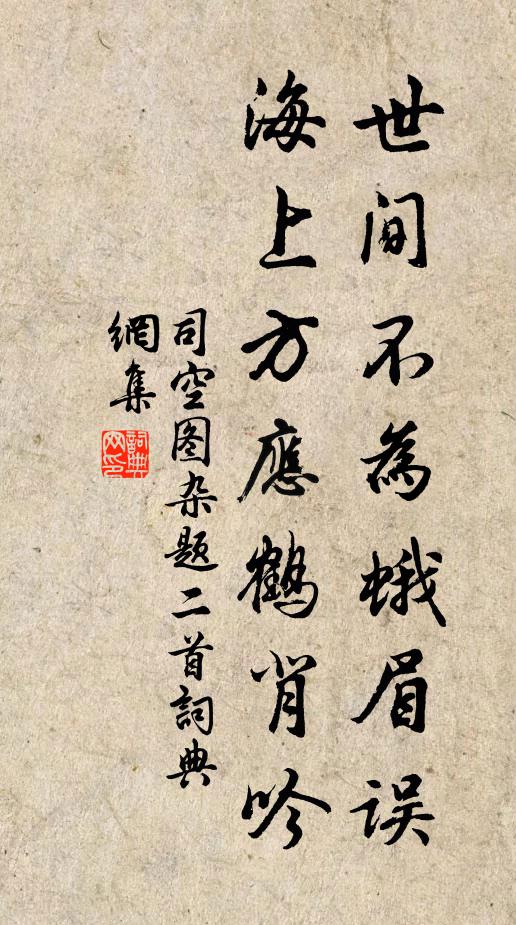 世间不為蛾眉误
海上方應鶴背吟
司空图杂题二首詞典
網集
詞典網印